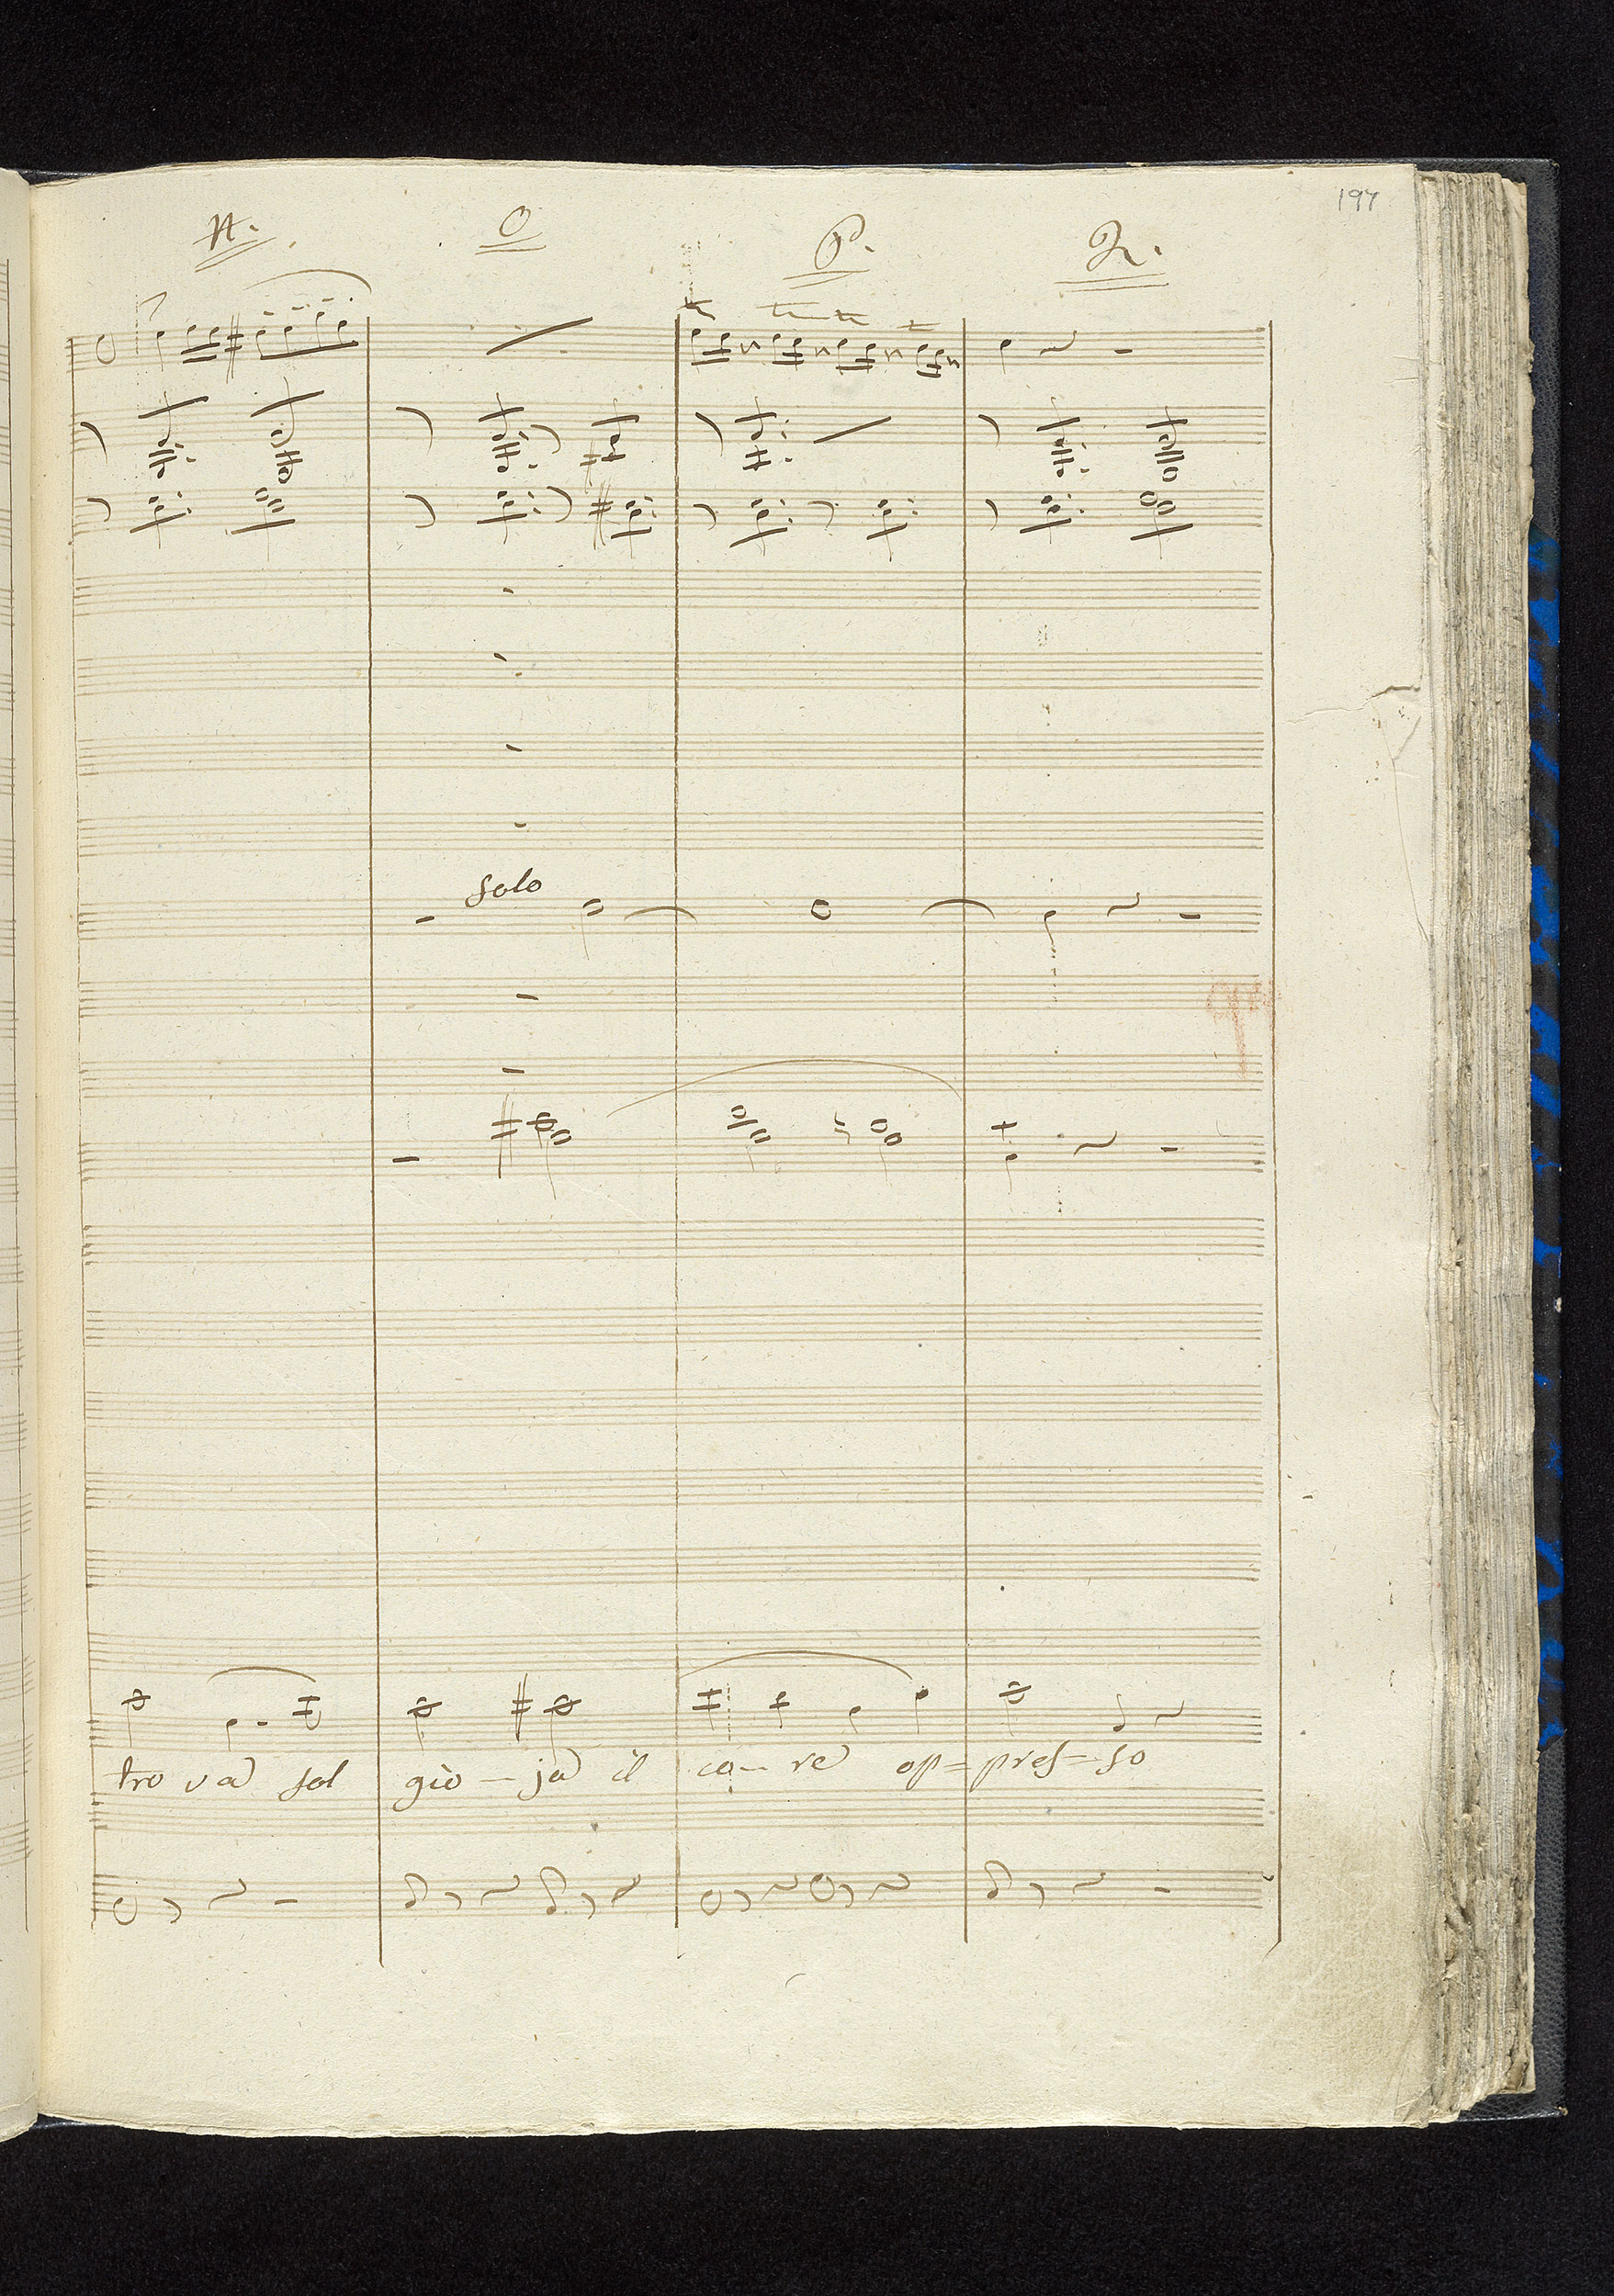 197
N. O P. R.
solo
tro va sol gio – ja il co – re op = pres = so